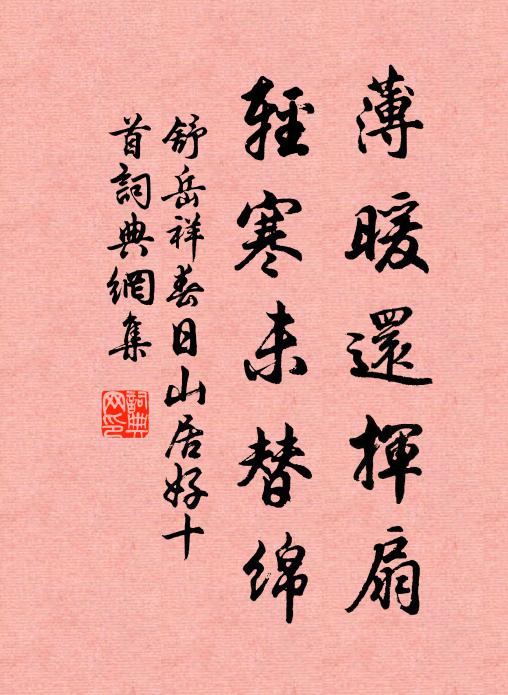 薄暖還揮扇
輕寒未替綿
舒岳祥春日山居好十
首詞典網集
詞典网印